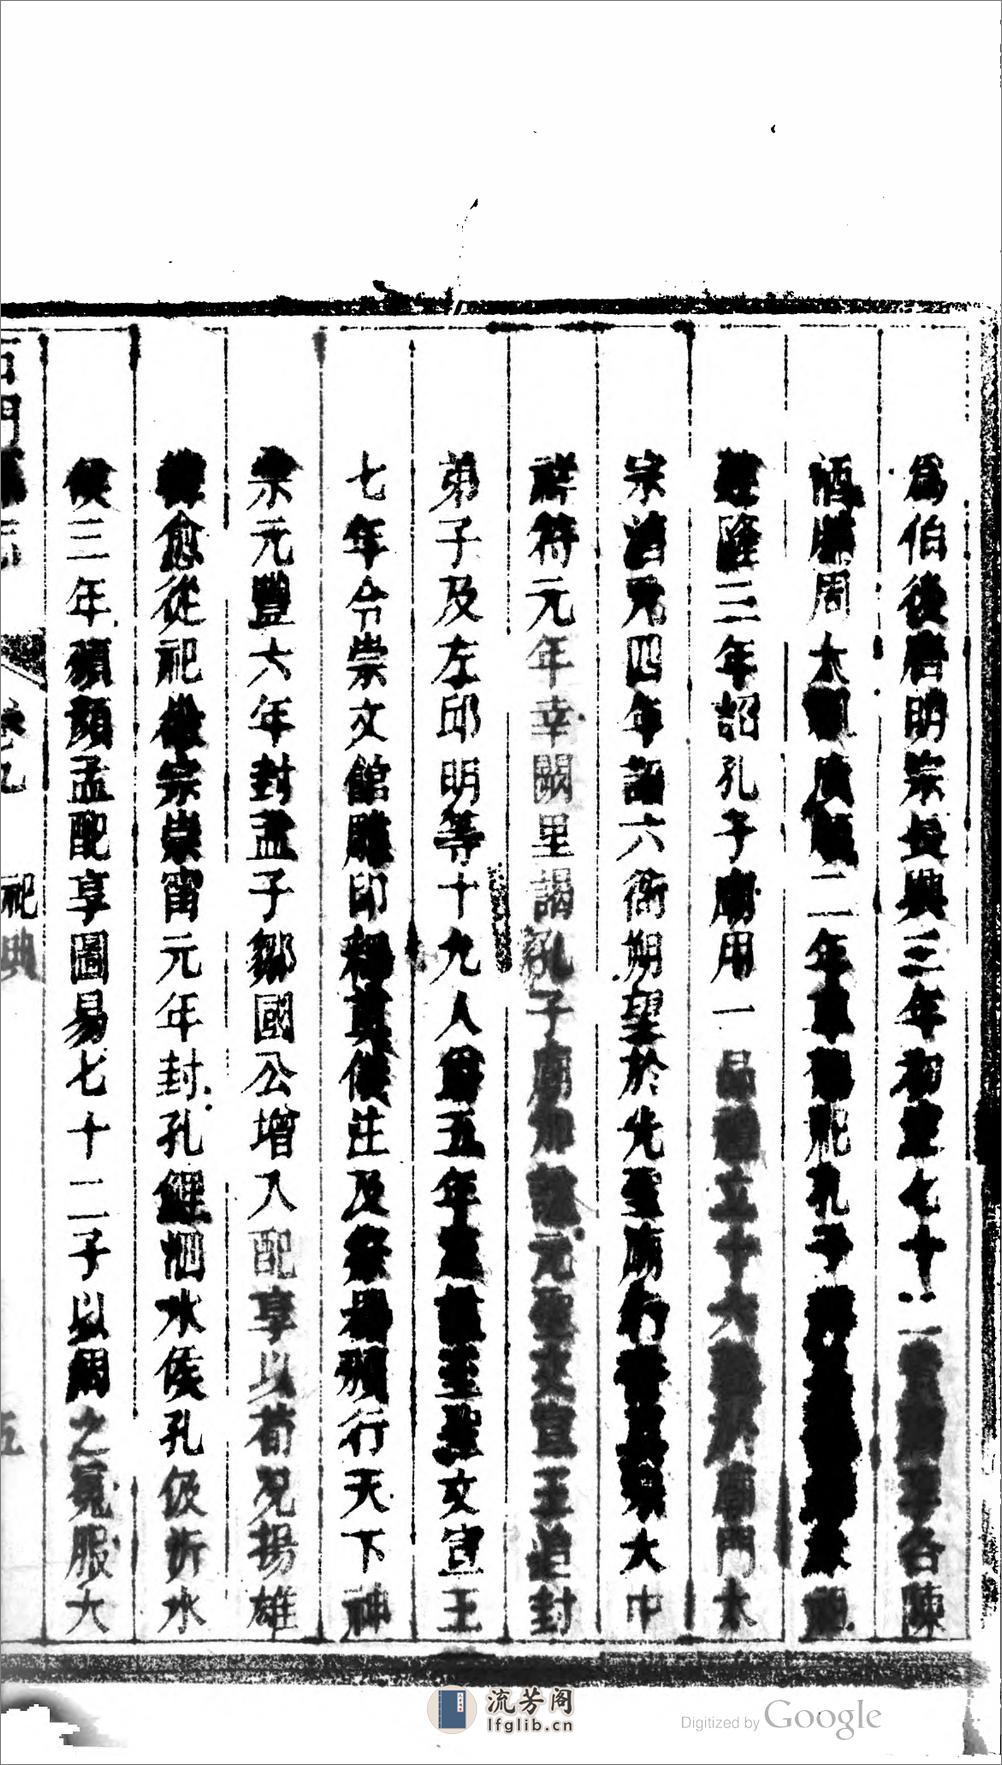 為伯後唐明宗長興三年初定七十二賢祭各陳
酒脯周太祖廣順二年幸祀孔子
建隆三年詔孔子廟用一品禮立十六戟於廟門太
宗淳元四年詔六衙朔望於先聖廟行香真宗大中
祥符元年幸闕里謁孔子廟加謚元聖文宣王追封
弟子及左邱明等十九人爵五年改謚至聖文宣王
七年令崇文館雕印釋奠儀注及祭器頒行天下神
宗元豐六年封孟子鄒國公增入配享以荀況揚雄
韓愈從祀徽宗崇甯元年封孔鯉泗水侯孔伋沂水
侯三年頒顏孟配享圖易七十二子以周之冕服大
石門縣志 卷九 祀典 五
流芳阁
lfglib.cn
Digitized by Google